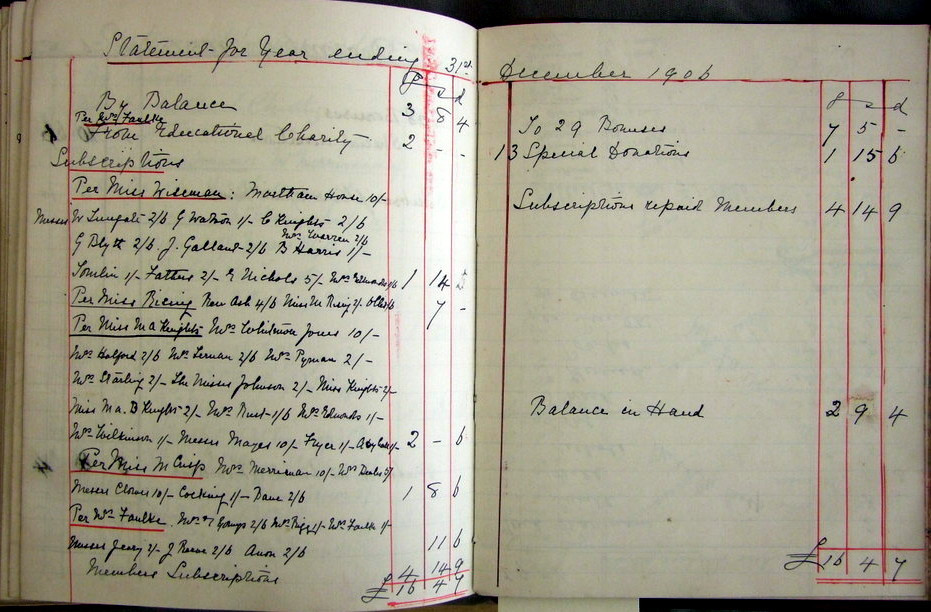 Statement for Year ending 31st
£ s d
By Balance 3 8 4
Per Mrs Faulke
From Educational Charity 2 - -
Subscriptions
Per Miss Wiseman: Martham House 10/-
Messrs W Lungate 2/6 G Watson 1/- C Knights 2/6
Mrs Warren 2/6
G Blyth 2/6 J. Galland 2/6 B Harris 1/-
Tomlin 1/- Fathers 2/- E Nichols 5/- Mrs Edmonds 1 14
Per Miss Rising Rev Ash 4/6 Miss M Rising 2/- 7 -
Per Miss M A Knights Mrs Whitmore Jones 10/-
Mrs Halford 2/6 Mrs Lernan 2/6 Mrs Pyman 2/-
Mrs Starling 2/- The Misses Johnson 2/- Miss Knights 2/-
Miss Ma. B Knights 2/- Mrs Rust 1/6 Mrs Edmonds 1/-
Mrs Wilkinson 1/- Messrs Mayes 10/- Fryer 1/- 2 - 6
Per Miss M Crisp Mrs Merriman 10/- Mrs
Messrs Clowes 10/- Cocking 1/- 2/6 1 8 6
Per Mrs Faulke Mrs Mrs Faulke 1/-
Messrs Jeary 2/- J Reeve 2/6 Anon 2/6 11 6
Members Subscriptions 4 14 9
£ 16 4 7
December 1906
£ s d
To 29 Bonuses 7 5 -
13 Special Donations 1 15 6
Subscriptions repaid Members 4 14 9
Balance in Hand 2 9 4
£ 16 4 7